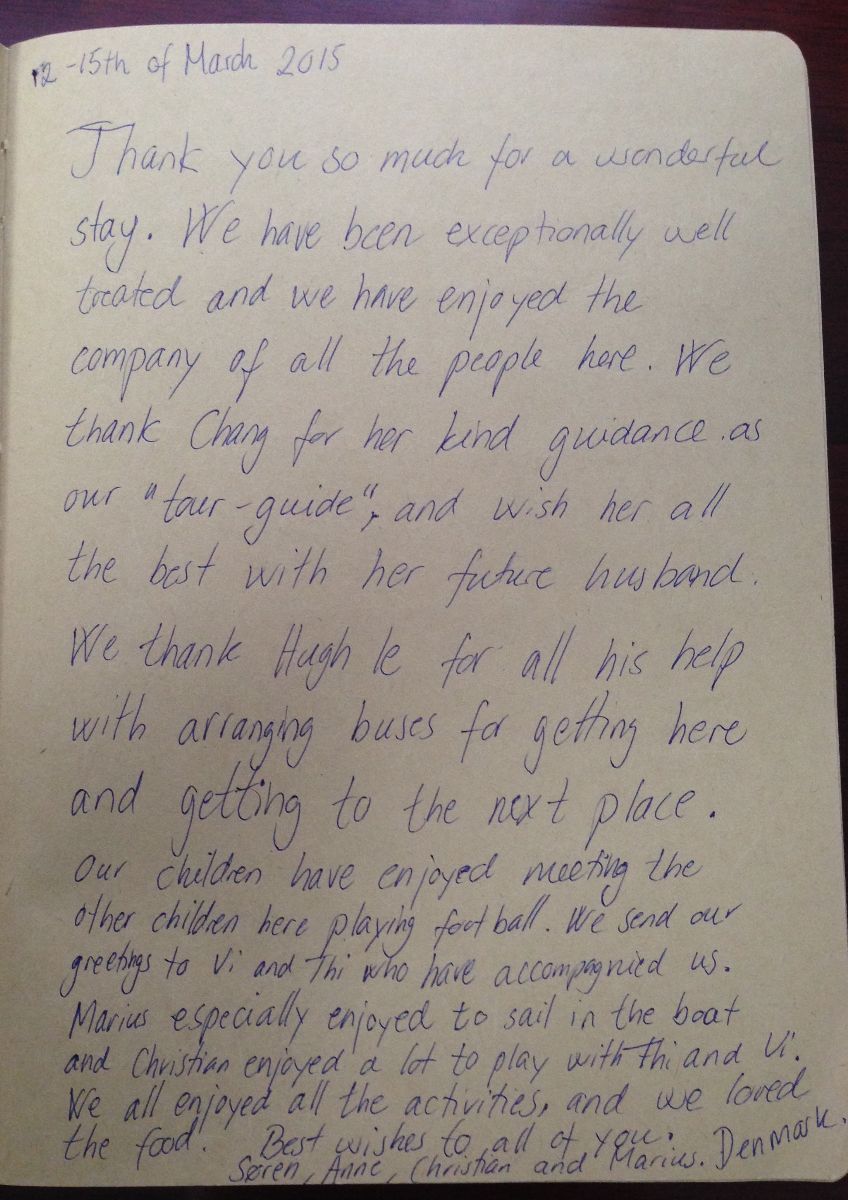 12-15th of March 2015
Thank you so much for a wonderful
stay. We have been exceptionally well
treated and we have enjoyed the
company of all the people here. We
thank Chang for her kind guidance as
our "tour-guide", and wish her all
the best with her future husband.
We thank Hugh le for all his help
with arranging buses for getting here
and getting to the next place.
Our children have enjoyed meeting the
other children here playing football. We send our
greetings to Vi and Thi who have accompagnied us.
Marius especially enjoyed to sail in the boat
and Christian enjoyed a lot to play with Thi and Vi.
We all enjoyed all the activities, and we loved
the food. Best wishes to all of you.
Søren, Anne, Christian and Marius. Denmark.